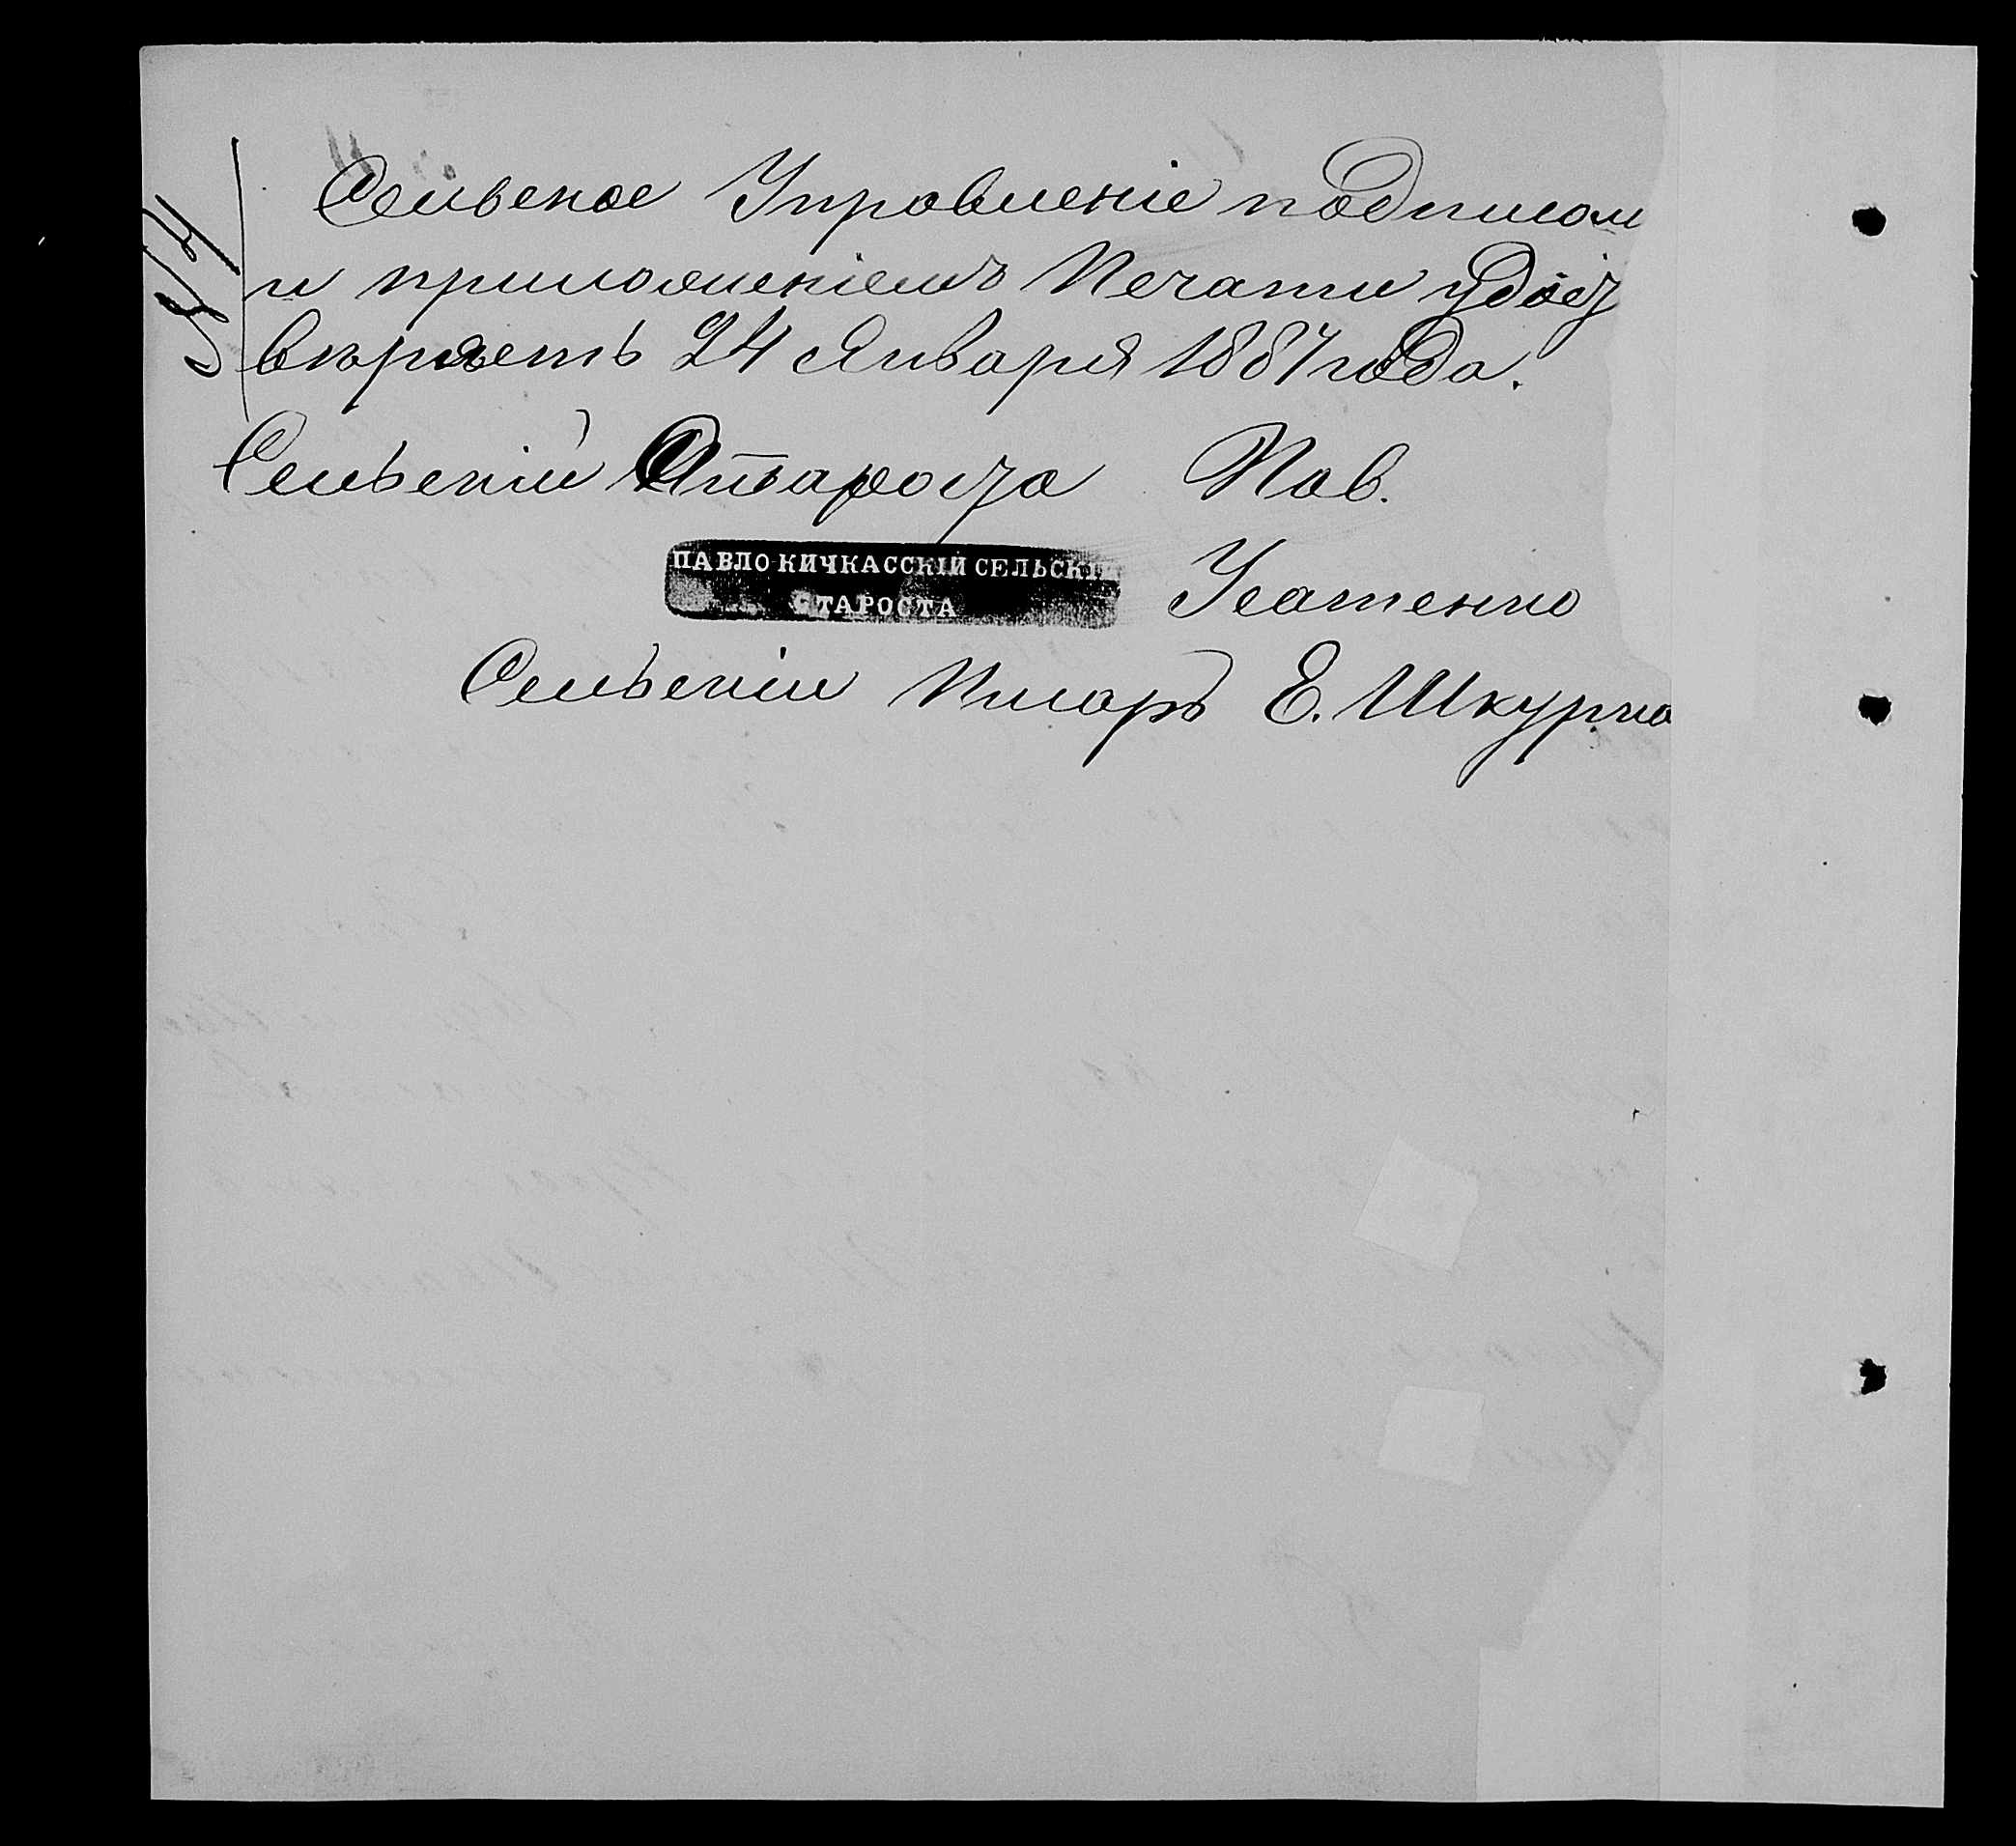 Сельское Управленіе подписом
и приложеніемъ Печати удос
вѣряетъ 24 Января 1887 года.
Сельскій Староста Пав.
ПАВЛО-КИЧКАССКІЙ СЕЛЬСКІЙ
СТАРОСТА
Усатенко
Сельскій Писарь Е. Шкурко